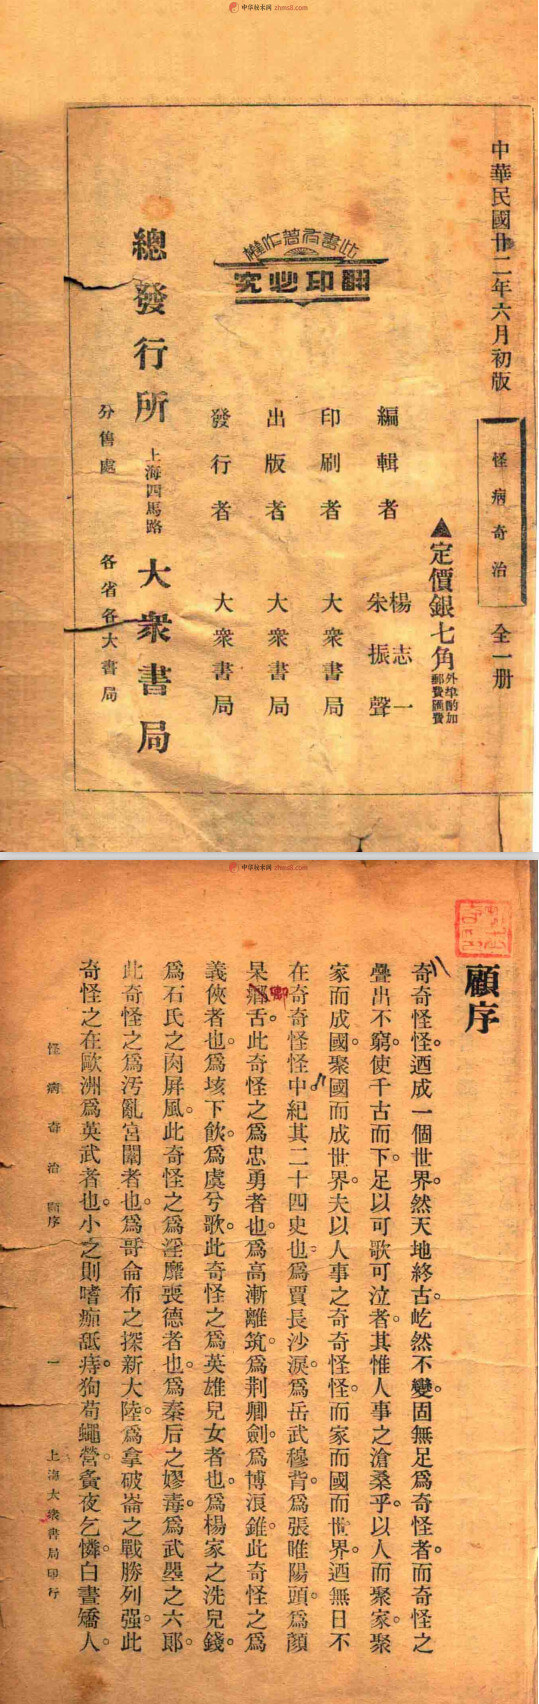 中华秋水网 zhns8.com
中華民國廿二年六月初版
怪病奇治
全一册
▲定價銀七角
外埠酌加
郵費匯費
編輯者
楊志一
朱振聲
印刷者 大衆書局
出版者 大衆書局
發行者 大衆書局
此書有著作權
翻印必究
總發行所 上海四馬路 大衆書局
分售處 各省各大書局
zhns8.com
顧序
奇奇怪怪。迺成一個世界。然天地終古。屹然不變。固無足爲奇怪者。而奇怪之
疊出不窮。使千古而下。足以可歌可泣者。其惟人事之滄桑乎。以人而聚家。聚
家而成國。聚國而成世界。夫以人事之奇奇怪怪。而家而國而世界。迺無日不
在奇奇怪怪中。紀其二十四史也。爲賈長沙淚。爲岳武穆背。爲張睢陽頭。爲顏
杲卿舌。此奇怪之爲忠勇者也。爲高漸離筑。爲荆卿劍。爲博浪錐。此奇怪之爲
義俠者也。爲垓下飲。爲虞兮歌。此奇怪之爲英雄兒女者也。爲楊家之洗兒錢。
爲石氏之肉屏風。此奇怪之爲淫靡喪德者也。爲秦后之嫪毐。爲武曌之六郎。
此奇怪之爲汚亂宮闈者也。爲哥侖布之探新大陸。爲拿破崙之戰勝列强。此
奇怪之在歐洲爲英武者也。小之則嗜痂舐痔。狗苟蠅營。夤夜乞憐。白晝驕人。
怪病奇治 顧序 一 上海大衆書局印行